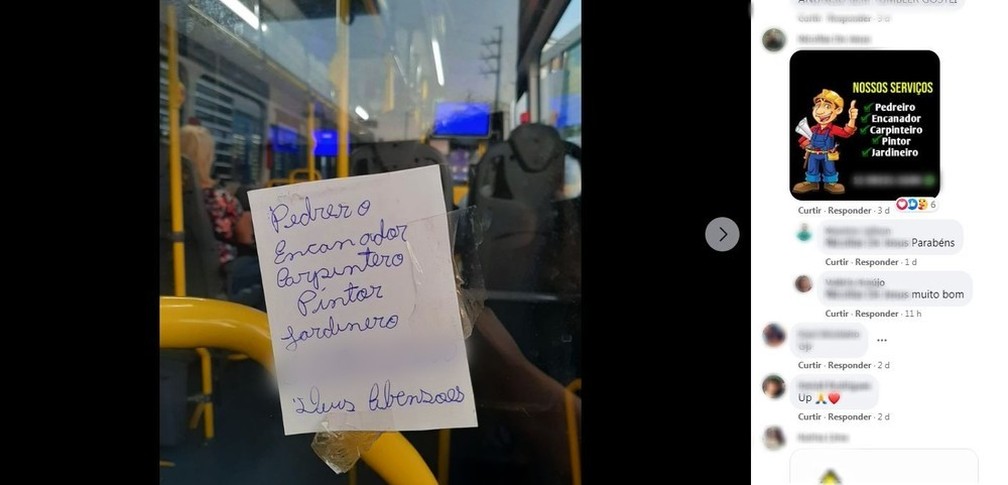 Pedrero
Encanador
Carpintero
Pintor
Jardinero
Deus Abensoes
Curtir · Responder · 3 d
NOSSOS SERVIÇOS
Pedreiro
Encanador
Carpinteiro
Pintor
Jardineiro
Curtir · Responder · 3 d
6
Parabéns
Curtir · Responder · 1 d
muito bom
Curtir · Responder · 11 h
Curtir · Responder · 2 d
Up 🙏❤️
Curtir · Responder · 2 d